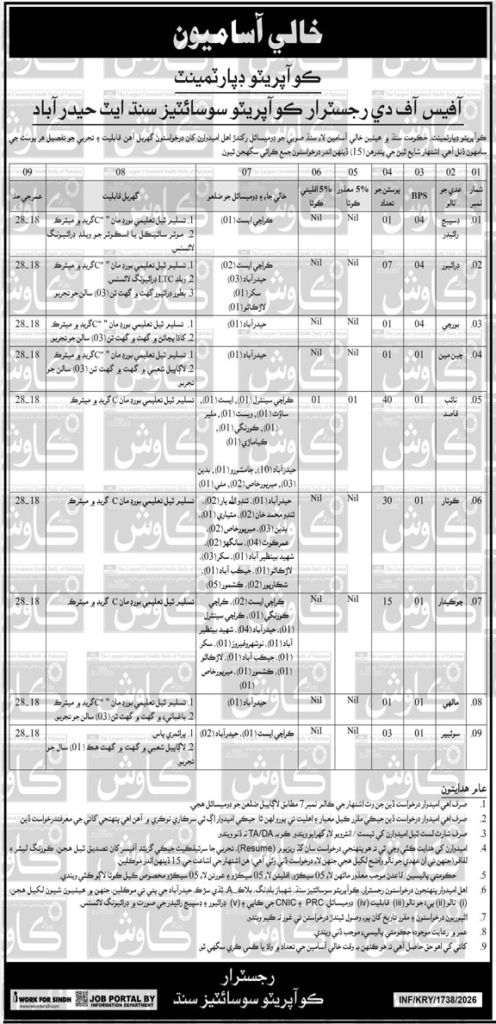 خالي آساميون
ڪو آپريٽو ڊپارٽمينٽ
آفيس آف دي رجسٽرار ڪو آپريٽو سوسائٽيز سنڌ ايٽ حيدرآباد
ڪو آپريٽو ڊپارٽمينٽ، حڪومت سنڌ ۾ هيٺين خالي آسامين لاءِ سنڌ صوبي جو ڊوميسائل رکندڙ اهل اميدوارن کان درخواستون گهربل آهن قابليت ۽ تجربي جو تفصيل هر پوسٽ جي
سامهون ڏنل آهي. اشتهار شايع ٿيڻ جي پندرهن (15) ڏينهن اندر درخواستون جمع ڪرائي سگهجن ٿيون.
01 02 03 04 05 06 07 08 09
شمار نمبر عهدي جو نالو BPS پوسٽن جو تعداد 5% معذور ڪوٽا 5% اقليتي ڪوٽا خالي جاءِ ۽ ڊوميسائل جو ضلعو گهربل قابليت عمر جي حد
01. ڊسپيچ رائيڊر 04 01 Nil Nil ڪراچي ايسٽ (01) 1. تسليم ٿيل تعليمي بورڊ مان "C" گريڊ ۾ ميٽرڪ 18_28
2. موٽر سائيڪل يا اسڪوٽر جو ويلڊ ڊرائيونگ لائسنس.
02. ڊرائيور 04 07 Nil Nil ڪراچي ايسٽ (02) 1. تسليم ٿيل تعليمي بورڊ مان "C" گريڊ ۾ ميٽرڪ 18_28
حيدرآباد (03) 2. ويلڊ LTC ڊرائيونگ لائسنس.
سکر (01) 3. بطور ڊرائيور گهٽ ۾ گهٽ ٽن (03) سالن جو تجربو.
لاڙڪاڻو (01)
03. بورچي 04 01 Nil Nil حيدرآباد (01) 1. تسليم ٿيل تعليمي بورڊ مان "C" گريڊ ۾ ميٽرڪ 18_28
2. کاڌا پچائڻ ۾ گهٽ ۾ گهٽ ٽن (03) سالن جو تجربو.
04. چين مين 01 01 Nil Nil حيدرآباد (01) 1. تسليم ٿيل تعليمي بورڊ مان "C" گريڊ ۾ ميٽرڪ 18_28
2. لاڳاپيل شعبي ۾ گهٽ ۾ گهٽ ٽن (03) سالن جو تجربو.
05. نائب قاصد 01 40 01 01 ڪراچي سينٽرل (01)، ايسٽ (01)، تسليم ٿيل تعليمي بورڊ مان C گريڊ ۾ ميٽرڪ 18_28
سائوٿ (01)، ويسٽ (01)، ملير
(01)، ڪورنگي (01)،
ڪياماڙي (01)
حيدرآباد (10)، ڄامشورو (01)، بدين
(03)، ميرپورخاص (02)، مٺي (01)
06. ڪوٽار 01 30 Nil Nil حيدرآباد (01)، ٽنڊو الله يار (02)، تسليم ٿيل تعليمي بورڊ مان C گريڊ ۾ ميٽرڪ 18_28
ٽنڊو محمد خان (02)، مٽياري (01)،
بدين (03)، ميرپورخاص (02)،
عمرڪوٽ (04)، سانگهڙ (02)،
شهيد بينظير آباد (01)، سکر (03)،
لاڙڪاڻو (01)، جيڪب آباد (01)،
شڪارپور (02)، ڪشمور (05)
07. چوڪيدار 01 15 Nil Nil ڪراچي ايسٽ (02)، ڪراچي تسليم ٿيل تعليمي بورڊ مان C گريڊ ۾ ميٽرڪ 18_28
ڪورنگي (01)، ڪراچي سينٽرل
(01)، حيدرآباد (04)، شهيد بينظير
آباد (01)، نوشهروفيروز (01)، سکر
(01)، جيڪب آباد (01)، لاڙڪاڻو
(01)، ڪشمور (01)، ميرپورخاص
(01)
08. مالهي 01 01 Nil Nil حيدرآباد (01) 1. تسليم ٿيل تعليمي بورڊ مان "C" گريڊ ۾ ميٽرڪ 18_28
2. باغباني ۾ گهٽ ۾ گهٽ ٽن (03) سالن جو تجربو.
09. سوئيپر 01 03 Nil Nil ڪراچي ايسٽ (01)، حيدرآباد (02) 1. پرائمري پاس 18_28
2. لاڳاپيل شعبي ۾ گهٽ ۾ گهٽ هڪ (01) سال جو تجربو.
عام هدايتون
1. صرف اهي اميدوار درخواست ڏين جن وٽ اشتهار جي ڪالم نمبر 7 مطابق لاڳاپيل ضلعن جو ڊوميسائل هجي.
2. صرف اهي اميدوار درخواست ڏين جيڪي مقرر ڪيل معيار ۽ اهليت تي پورو لهن ٿا جيڪي اميدوار اڳ ئي سرڪاري نوڪري ۾ آهن اهي پنهنجي کاتي جي معرفت درخواست ڏين
3. صرف شارٽ لسٽ ٿيل اميدوارن کي ٽيسٽ / انٽرويو لاءِ گهرايو ويندو ڪو به TA/DA نه ڏنو ويندو
4. اميدوارن کي هدايت ڪئي وڃي ٿي ته هو پنهنجي درخواست سان گڏ ريزيوم (Resume)، تجربي جا سرٽيفڪيٽ جيڪي گزيٽيڊ آفيسر کان تصديق ٿيل هجن، ڪورنگ ليٽر ۽
لفافو (جنهن تي ان عهدي جو نالو واضح لکيل هجي جنهن لاءِ درخواست ڏني وئي آهي) هن اشتهار جي اشاعت جي 15 ڏينهن اندر موڪلين.
5. حڪومتي پاليسين، قاعدن موجب معذور ماڻهن لاءِ 05 سيڪڙو، اقليتن لاءِ 05 سيڪڙو ۽ عورتن لاءِ 05 سيڪڙو مخصوص ڪيل ڪوٽا لاڳو ڪئي ويندي.
6. اهل اميدوار پنهنجون درخواستون رجسٽرار، ڪو آپريٽو سوسائٽيز سنڌ، شهباز بلڊنگ، بلاڪ A، ٿڌي سڙڪ حيدرآباد جي پتي تي موڪلين جنهن ۾ هيٺيون شيون لکيل هجن.
(i) نالو (ii) پيءُ جو نالو (iii) قابليت (iv) ڊوميسائل، PRC ۽ CNIC جي ڪاپي ۽ (v) ڊرائيور ۽ ڊسپيچ رائيڊر جي صورت ۾ ڊرائيونگ لائسنس.
7. اڻپوريون درخواستون ۽ مقرر تاريخ کان پوءِ وصول ٿيندڙ درخواستن تي غور نه ڪيو ويندو.
8. عمر ۾ رعايت موجوده حڪومتي پاليسي موجب ڏني ويندي.
9. کاتي کي اهو حق حاصل آهي ته هو ڪنهن به وقت خالي آسامين جي تعداد ۾ واڌ يا ڪمي ڪري سگهي ٿو.
رجسٽرار
ڪو آپريٽو سوسائٽيز سنڌ
I WORK FOR SINDH
JOB PORTAL BY
INFORMATION DEPARTMENT
INF/KRY/1738/2026